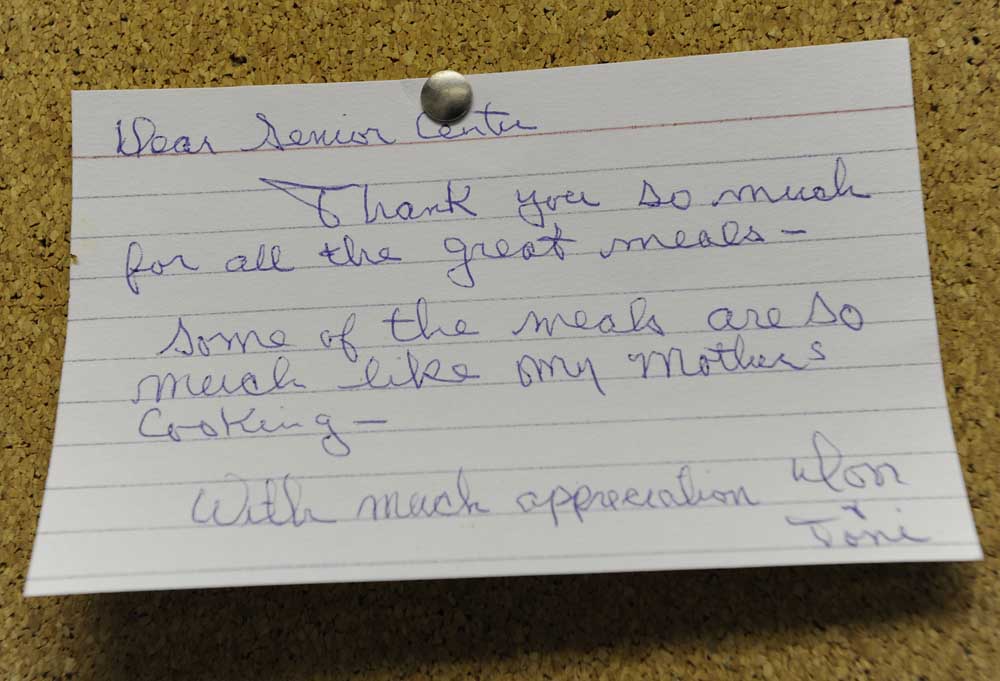 Dear Senior Center
Thank you so much
for all the great meals-
Some of the meals are so
much like my Mothers
Cooking-
With much appreciation Don
&
Toni